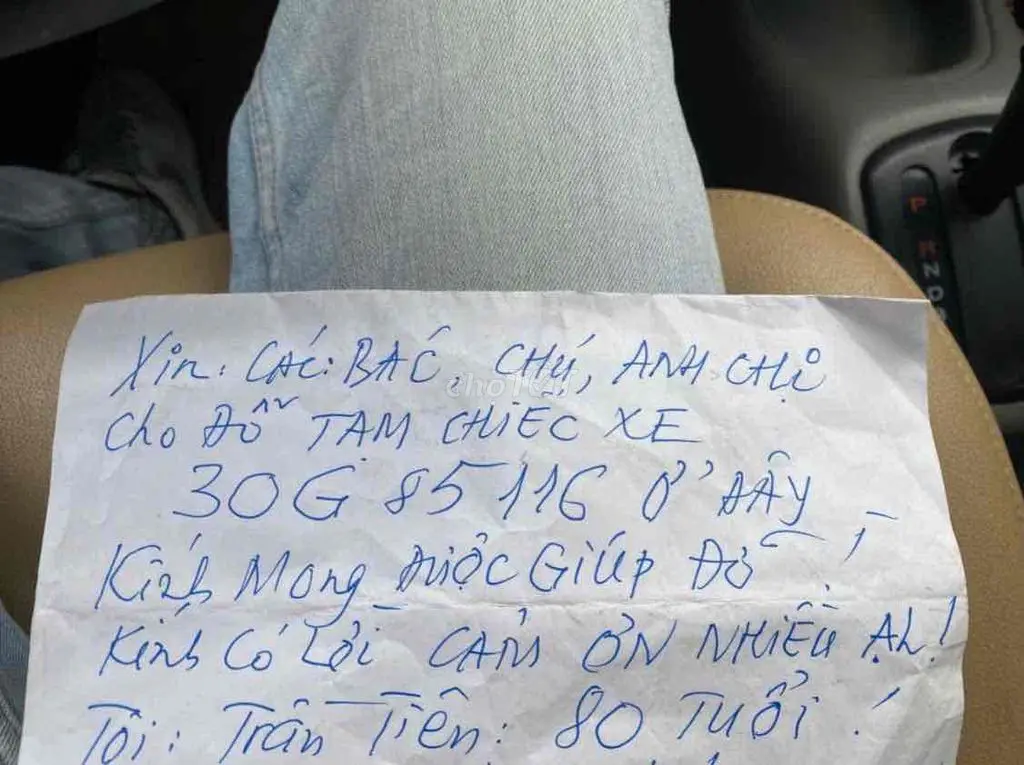 Xin: CÁC: BÁC, CHÚ, ANH CHỊ
Cho ĐỖ TẠM CHIẾC XE
30G 85 116 Ở ĐÂY
Kính Mong ĐƯỢC GIÚP ĐỠ!
Kính Có Lời CẢM ƠN NHIỀU Ạh!
Tôi: Trần Tiên: 80 TUỔI!
choTỐT
P
R
N
D